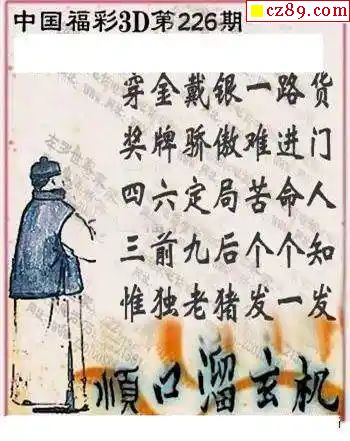 中国福彩3D第226期
cz89.com
穿金戴银一路货
奖牌骄傲难进门
四六定局苦命人
三前九后个个知
惟独老猪发一发
順口溜玄机